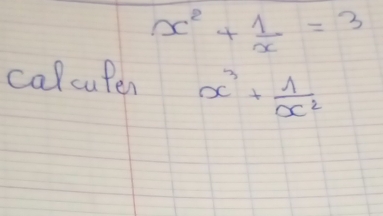 x² + 1/x = 3
calculer x³ + 1/x²